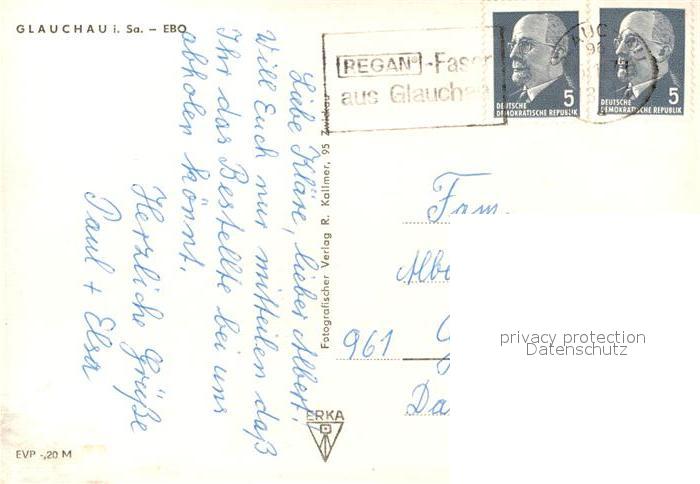 GLAUCHAU i. Sa. – EBO
Liebe Kläre, lieber Albert!
Will Euch nur mitteilen daß
Ihr das Bestellte bei uns
abholen könnt.
Herzliche Grüße
Paul + Elsa
EVP -,20 M
Fotografischer Verlag R. Kallmer, 95 Zwickau
ERKA
REGAN® -Faser
aus Glauchau
DEUTSCHE
DEMOKRATISCHE REPUBLIK
5
DEUTSCHE
DEMOKRATISCHE REPUBLIK
5
Fam.
Albe
961
Da
privacy protection
Datenschutz